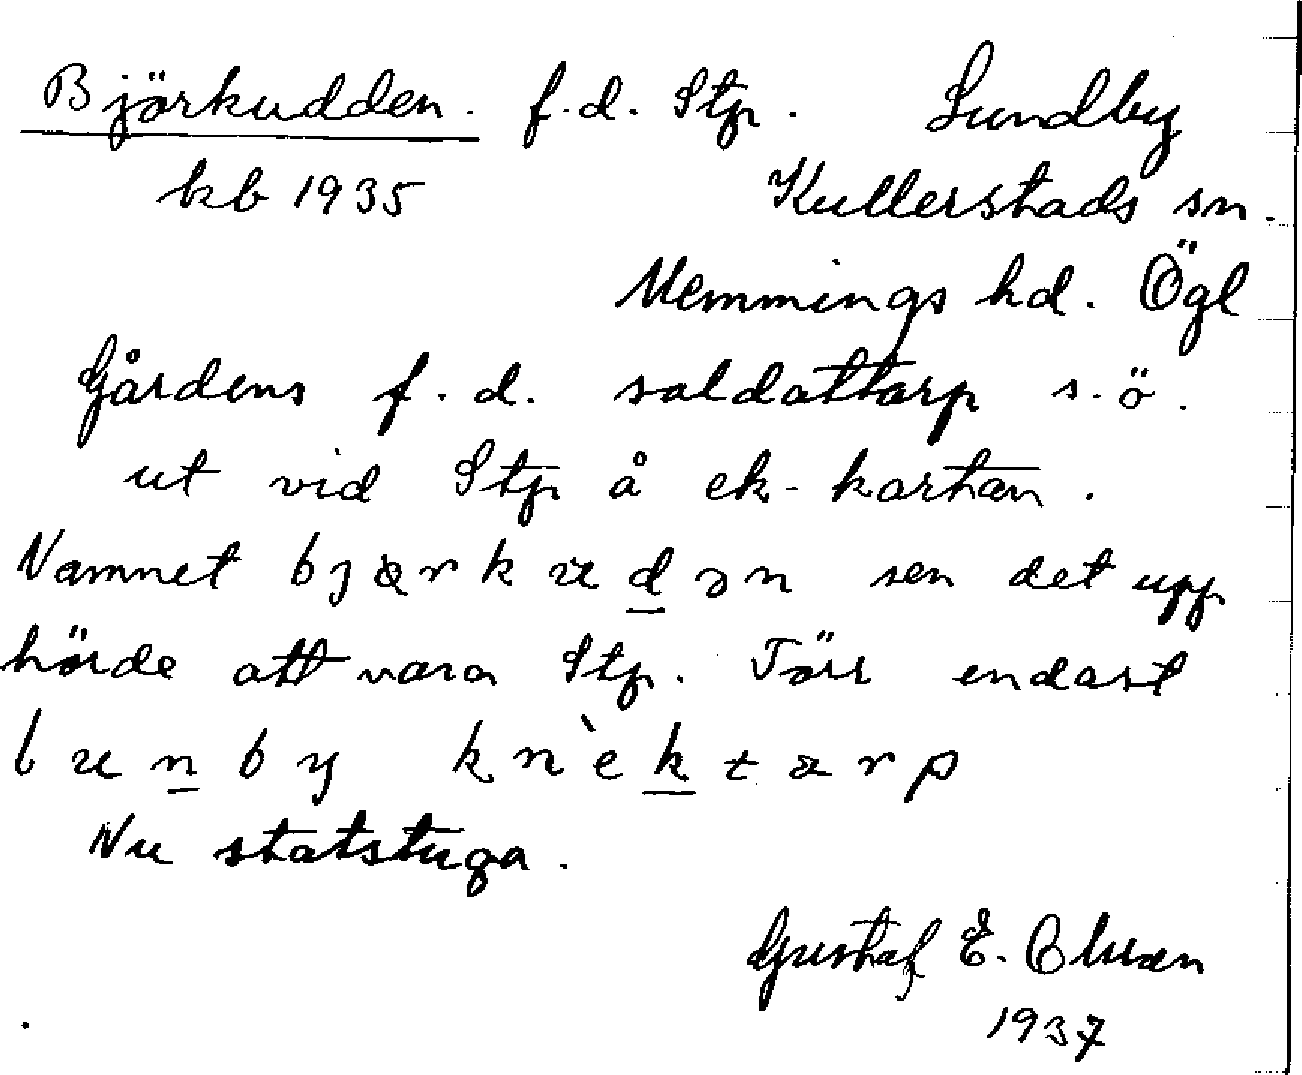 Björkudden. f.d. Stp. Lundby
kb 1935 Kullerstads sn.
Memmings hd. Ögl
Gårdens f.d. soldattorp s.ö.
ut vid Stp å ek-kartan.
Namnet bjœrkudən sen det upp
hörde att vara Stp. Förr endast
lunby knèktarp
Nu statstuga.
Gustaf E.
1937